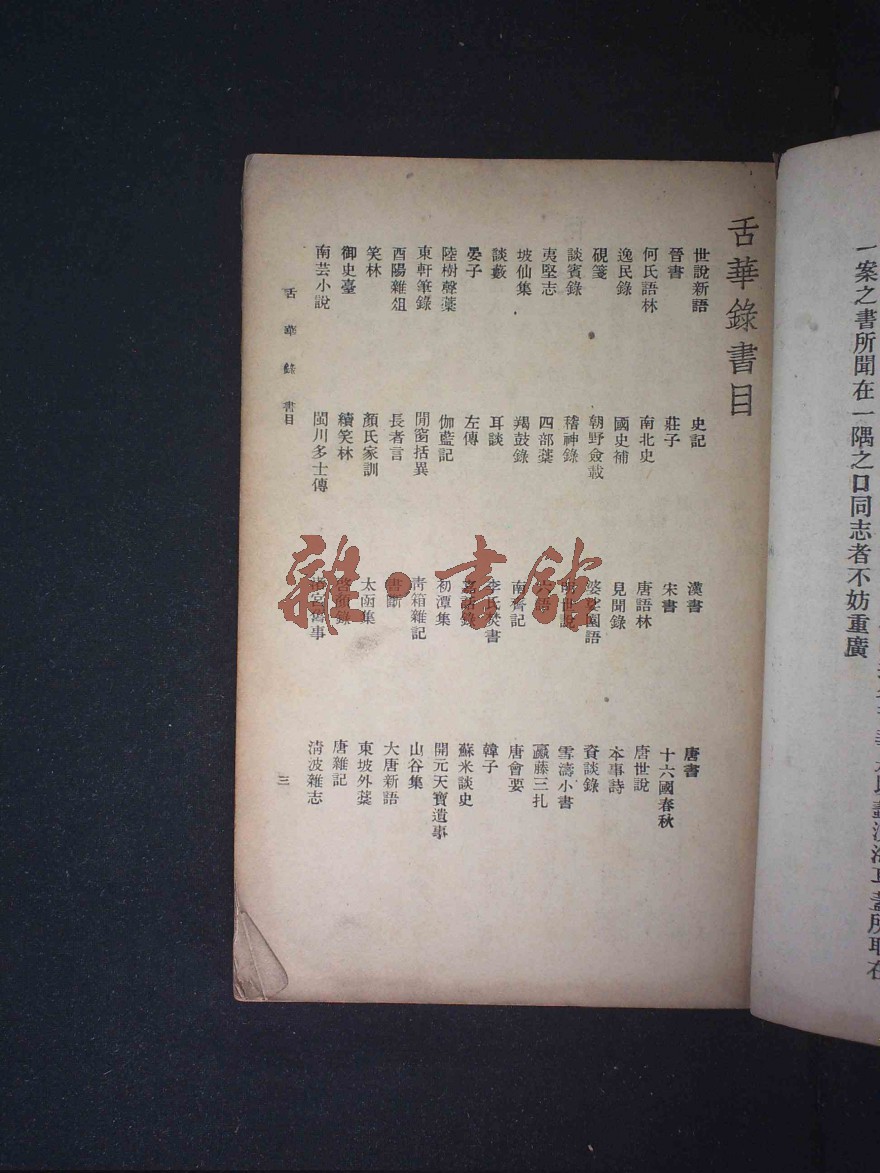 一案之書所聞在一隅之口同志者不妨重廣
舌華錄書目
世說新語 史記 漢書 唐書
晉書 莊子 宋書 十六國春秋
何氏語林 南北史 唐語林 唐世說
逸民錄 國史補 見聞錄 本事詩
硯箋 朝野僉載 婆娑園語 資談錄
談賓錄 稽神錄 明世說 雪濤小書
夷堅志 四部藁 六語 羸藤三扎
坡仙集 羯鼓錄 唐會要
談藪 耳談 李氏焚書 韓子
晏子 左傳 蘇米談史
陸樹聲藁 伽藍記 初潭集 開元天寶遺事
東軒筆錄 閒窗括異 青箱雜記 山谷集
酉陽雜俎 長者言 書斷 大唐新語
笑林 顏氏家訓 太函集 東坡外藁
御史臺 續笑林 啓顏錄 唐雜記
南芸小說 閩川多士傳 渚宮舊事 清波雜志
舌華錄 書目 三
雜·書館